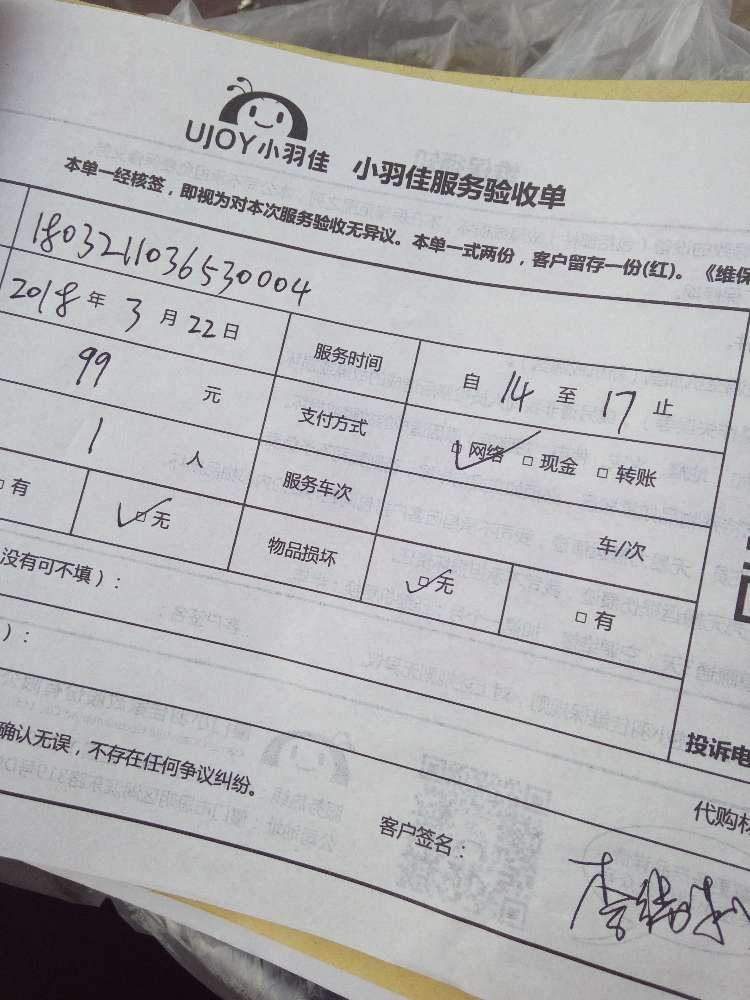 UJOY小羽佳 小羽佳服务验收单
本单一经核签，即视为对本次服务验收无异议。本单一式两份，客户留存一份(红)。《维保
1803211036530004
2018年3月22日 服务时间 自14至17止
99元 支付方式 网络 现金 转账
1人 服务车次 车/次
有 无 物品损坏 无 有
没有可不填）：
）：
投诉电
确认无误，不存在任何争议纠纷。
代购
客户签名：